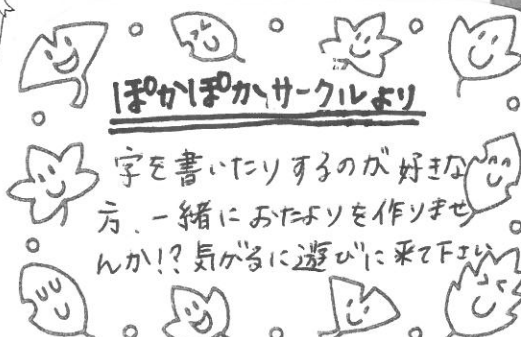 ぽかぽかサークルより
字を書いたりするのが好きな
方、一緒におたよりを作りませ
んか!?気がるに遊びに来て下さい